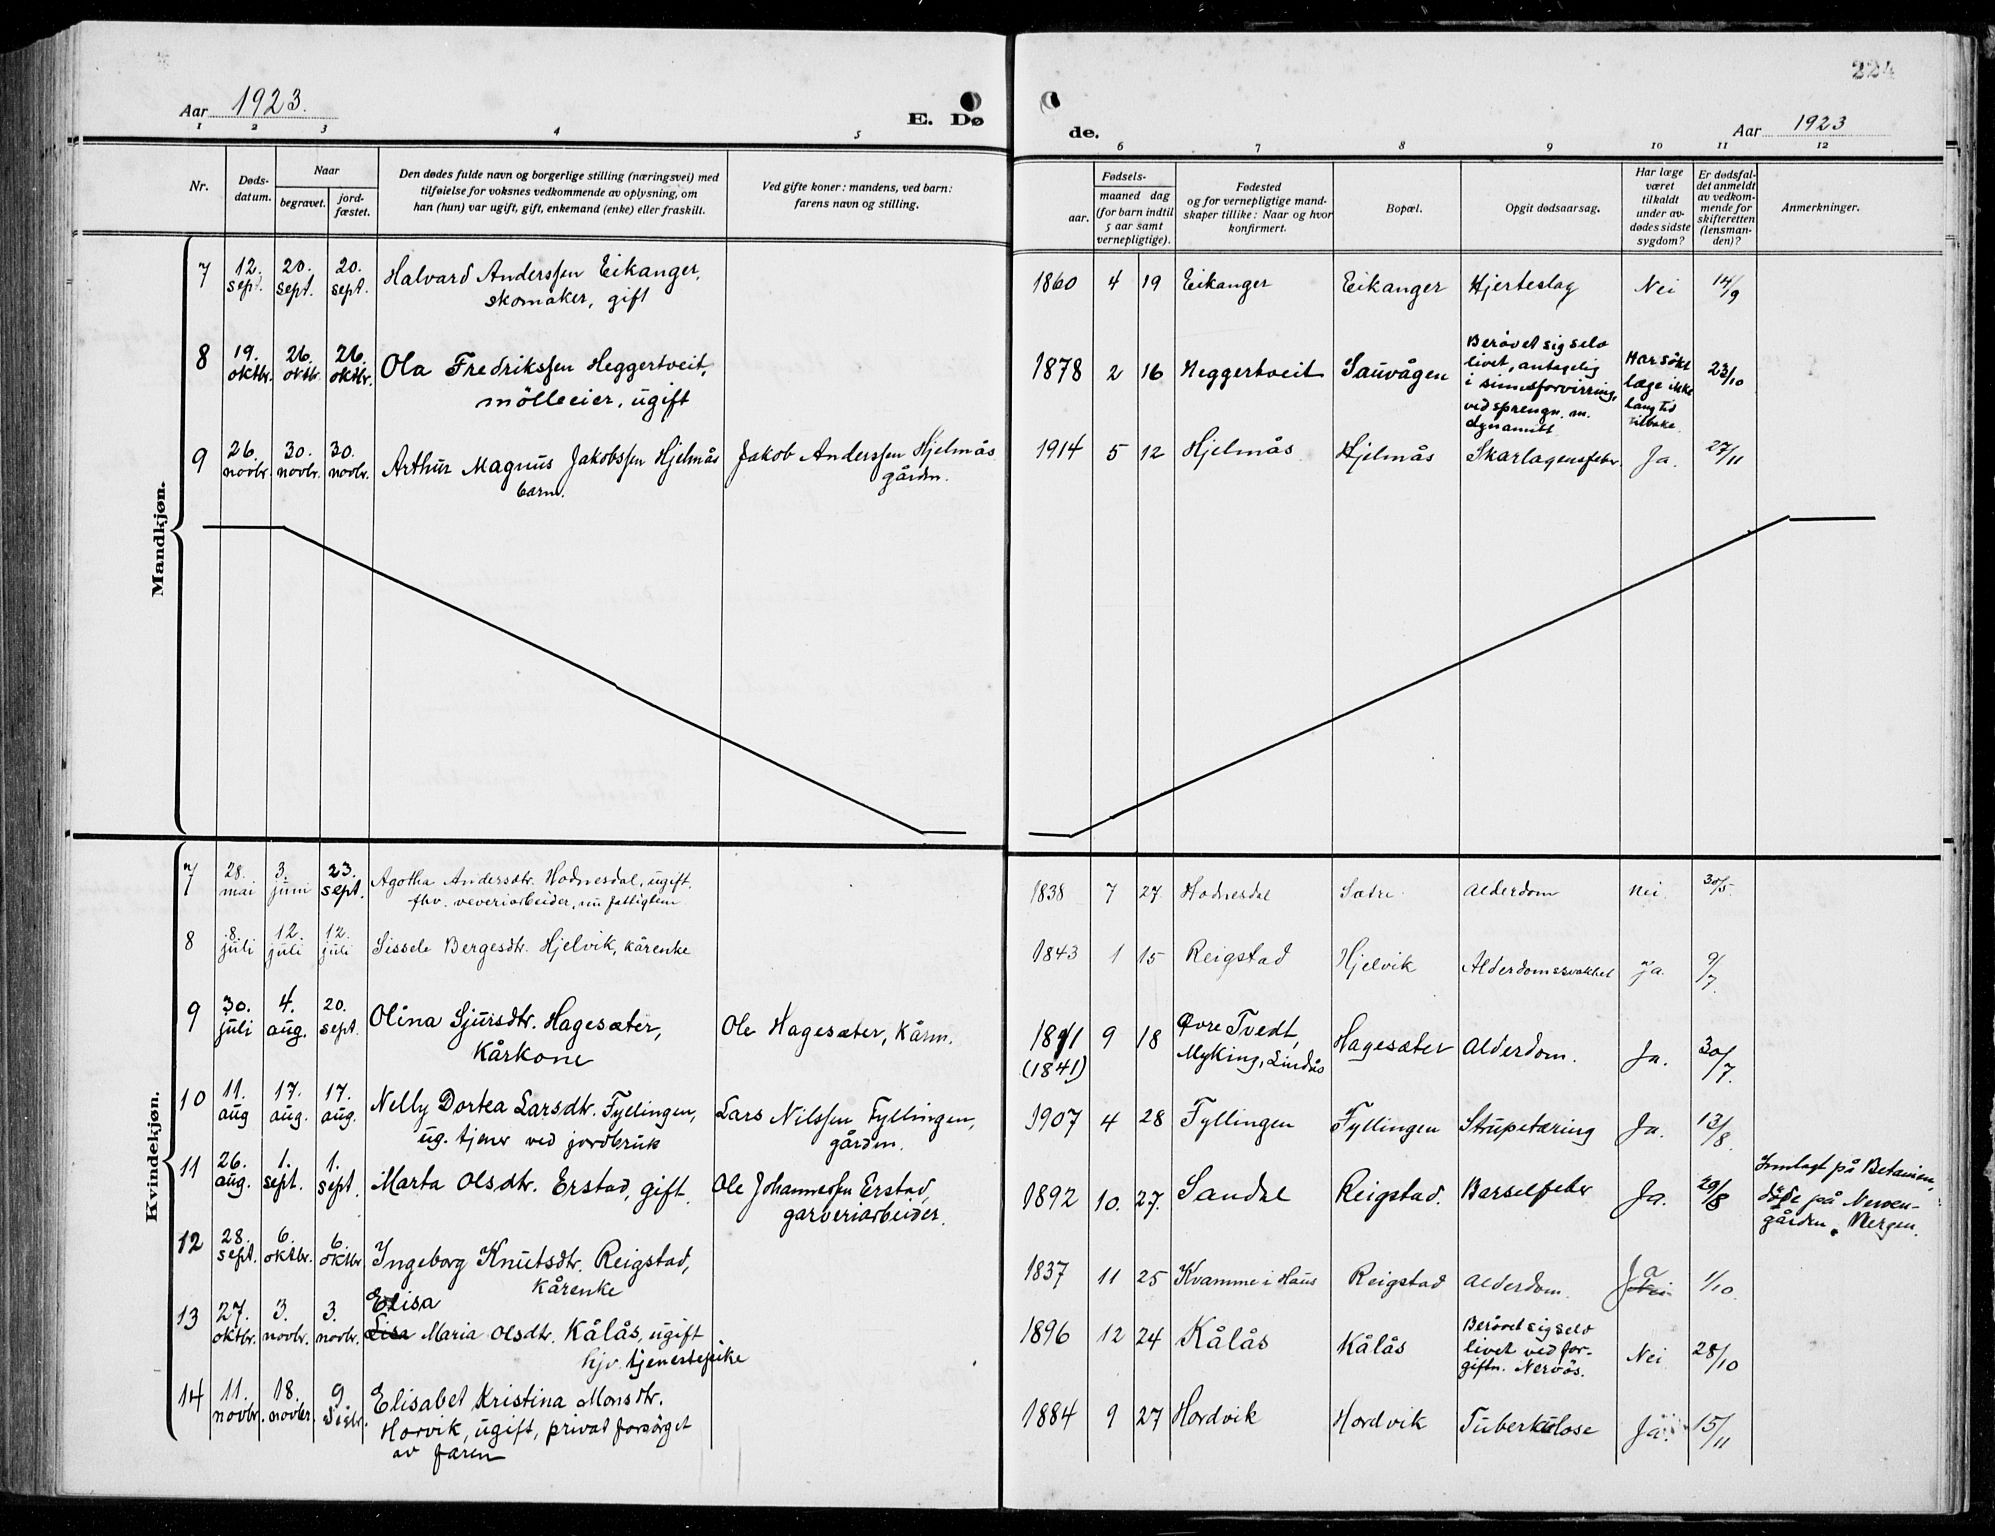 224
Aar 1923.
E. Dø
de.
Aar 1923
1 2 3 4 5
6 7 8 9 10 11 12
Nr.
Døds-
datum.
Naar
begravet.
jord-
fæstet.
Den dødes fulde navn og borgerlige stilling (næringsvei) med
tilføielse for voksnes vedkommende av oplysning, om
han (hun) var ugift, gift, enkemand (enke) eller fraskilt.
Ved gifte koner: mandens, ved barn:
farens navn og stilling.
Fødsels-
aar.
maaned dag
(for barn indtil
5 aar samt
vernepligtige).
Fødested
og for vernepligtige mand-
skaper tillike: Naar og hvor
konfirmert.
Bopæl.
Opgit dødsaarsag.
Har læge
været
tilkaldt
under av-
dødes sidste
sygdom?
Er dødsfal-
det anmeldt
av vedkom-
mende for
skifteretten
(lensman-
den)?
Anmerkninger.
Mandkjøn.
7 12. sept. 20. sept. 20. sept. Halvard Anderssen Eikanger,
skomaker, gift
1860 4 19 Eikanger Eikanger Hjerteslag Nei 14/9
8 19. oktbr. 26. oktbr. 26. oktbr. Ola Fredrikssen Heggertveit,
mölleeier, ugift
1878 2 16 Heggertveit Sauvågen
Berövet sig selv
livet, antagelig
i sinnsforvirring,
ved sprengn. m.
dynamitt
Har sökt
læge ikke
lang tid
tilbake.
23/10
9 26. novbr. 30. novbr. 30. novbr. Arthur Magnus Jakobssen Hjelmås
barn.
Jakob Anderssen Hjelmås
gårdm.
1914 5 12 Hjelmås Hjelmås Skarlagensfeber Ja. 27/11
Kvindekjøn.
7 28. mai 3. juni 23. sept. Agotha Andersdtr. Hodnesdal, ugift.
fhv. veveriarbeider, nu fattiglem
1838 7 27 Hodnesdal Sætre Alderdom Nei 30/5
8 8. juli 12. juli 12. juli Sissele Bergesdtr. Hjelvik, kårenke
1843 1 15 Reigstad Hjelvik Alderdomssvakhet Ja. 9/7.
9 30. juli 4. aug. 20. sept. Olina Sjursdtr. Hagesæter,
Kårkone
Ole Hagesæter, Kårm.
1841 9 18
(1841)
Øvre Tvedt,
Myking, Lindås
Hagesæter Alderdom. Ja. 30/7.
10 11. aug 17. aug. 17. aug. Nelly Dortea Larsdtr. Fyllingen,
ug. tjener ved jordbruk
Lars Nilssen Fyllingen,
gårdm.
1907 4 28 Fyllingen Fyllingen Strupetæring Ja. 13/8.
11 26. aug. 1. sept. 1. sept. Marta Olsdtr. Erstad, gift.
Ole Johannessen Erstad,
garveriarbeider.
1892 10. 27. Sandal Reigstad. Barselfeber Ja. 29/8
Innlagt på Betanien,
döde på Nerven-
gården, Bergen.
12 28. sept. 6. oktbr. 6. oktbr. Ingeborg Knutsdtr. Reigstad,
Kårenke
1837 11 25 Kvamme i Haus Reigstad Alderdom. Ja Nei 1/10.
13 27. oktbr. 3. novbr. 3. novbr. Elisa
Lisa Maria Olsdtr. Kålås, ugift
hjv. tjenestepike
1896 12 24 Kålås Kålås
Berövet sig selv
livet ved for-
giftn. Nervös.
Nei 28/10
14 11. novbr. 18. novbr. 9 Desbr. Elisabet Kristina Monsdtr.
Horvik, ugift, privat forsörget
av faren
1884 9 27 Hordvik Hordvik Tuberkulose Ja. 15/11